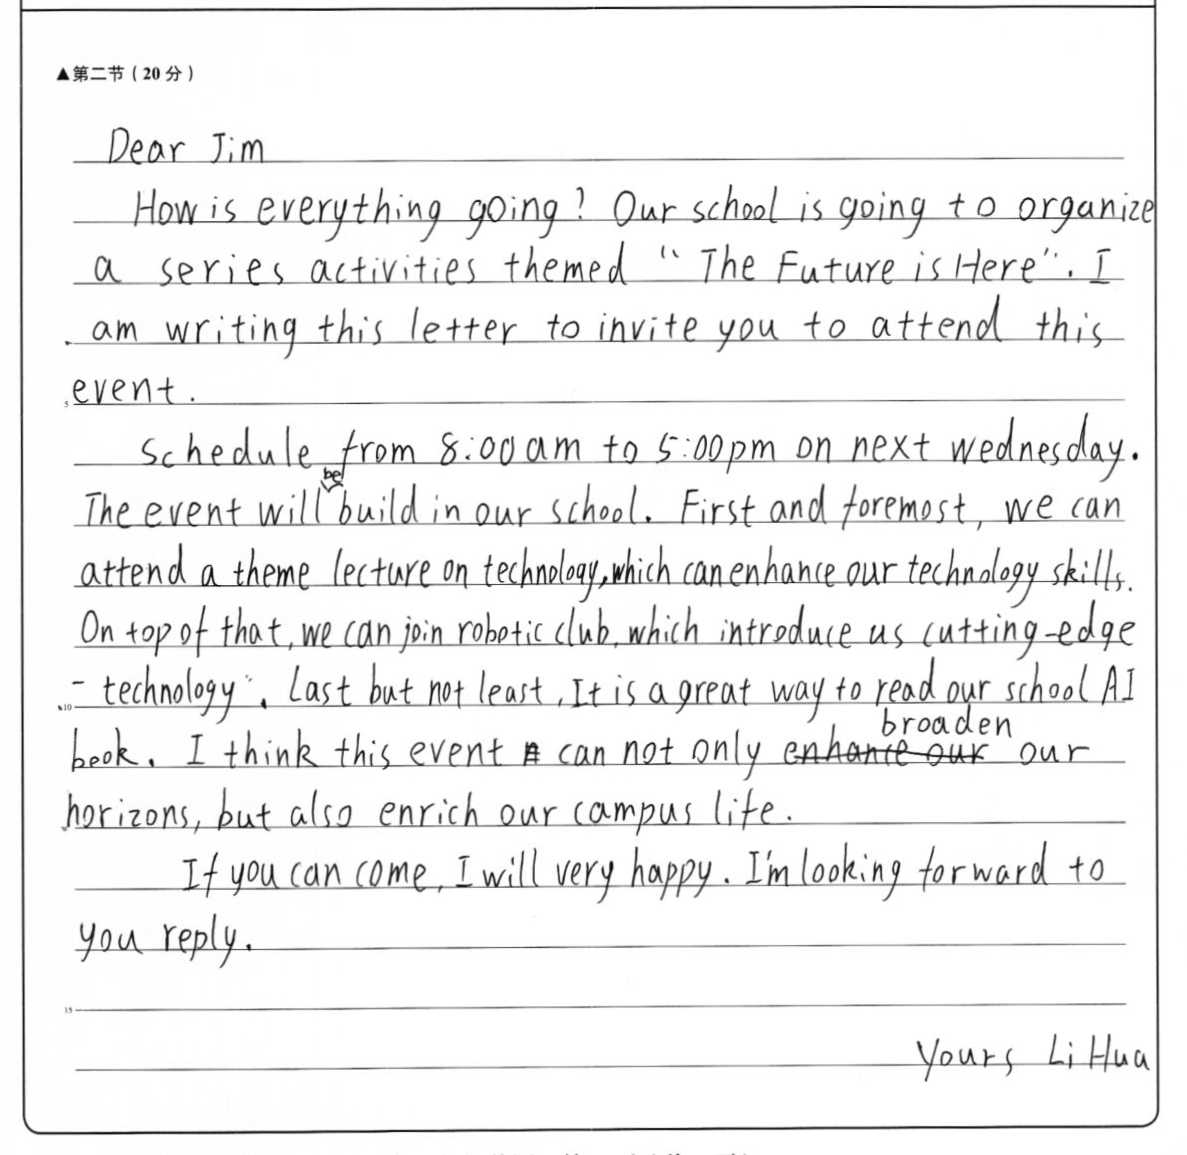 ▲第二节（20分）
Dear Jim
How is everything going? Our school is going to organize
a series activities themed "The Future is Here". I
am writing this letter to invite you to attend this
event.
5
Schedule from 8:00 am to 5:00 pm on next wednesday.
The event will be build in our school. First and foremost, we can
attend a theme lecture on technology, which can enhance our technology skills.
On top of that, we can join robotic club, which introduce us cutting-edge
- technology". Last but not least, It is a great way to read our school AI
10
book. I think this event can not only broaden our
horizons, but also enrich our campus life.
If you can come, I will very happy. I'm looking forward to
you reply.
15
Yours Li Hua